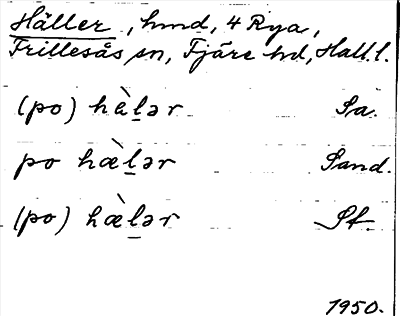 Häller, hmd, 4 Rya,
Frillesås sn, Fjäre hd, Hall. l.
(po) hàl̲ər Sa.
po hæ̀l̲ər Sand.
(po) hæ̀l̲ər St.
1950.